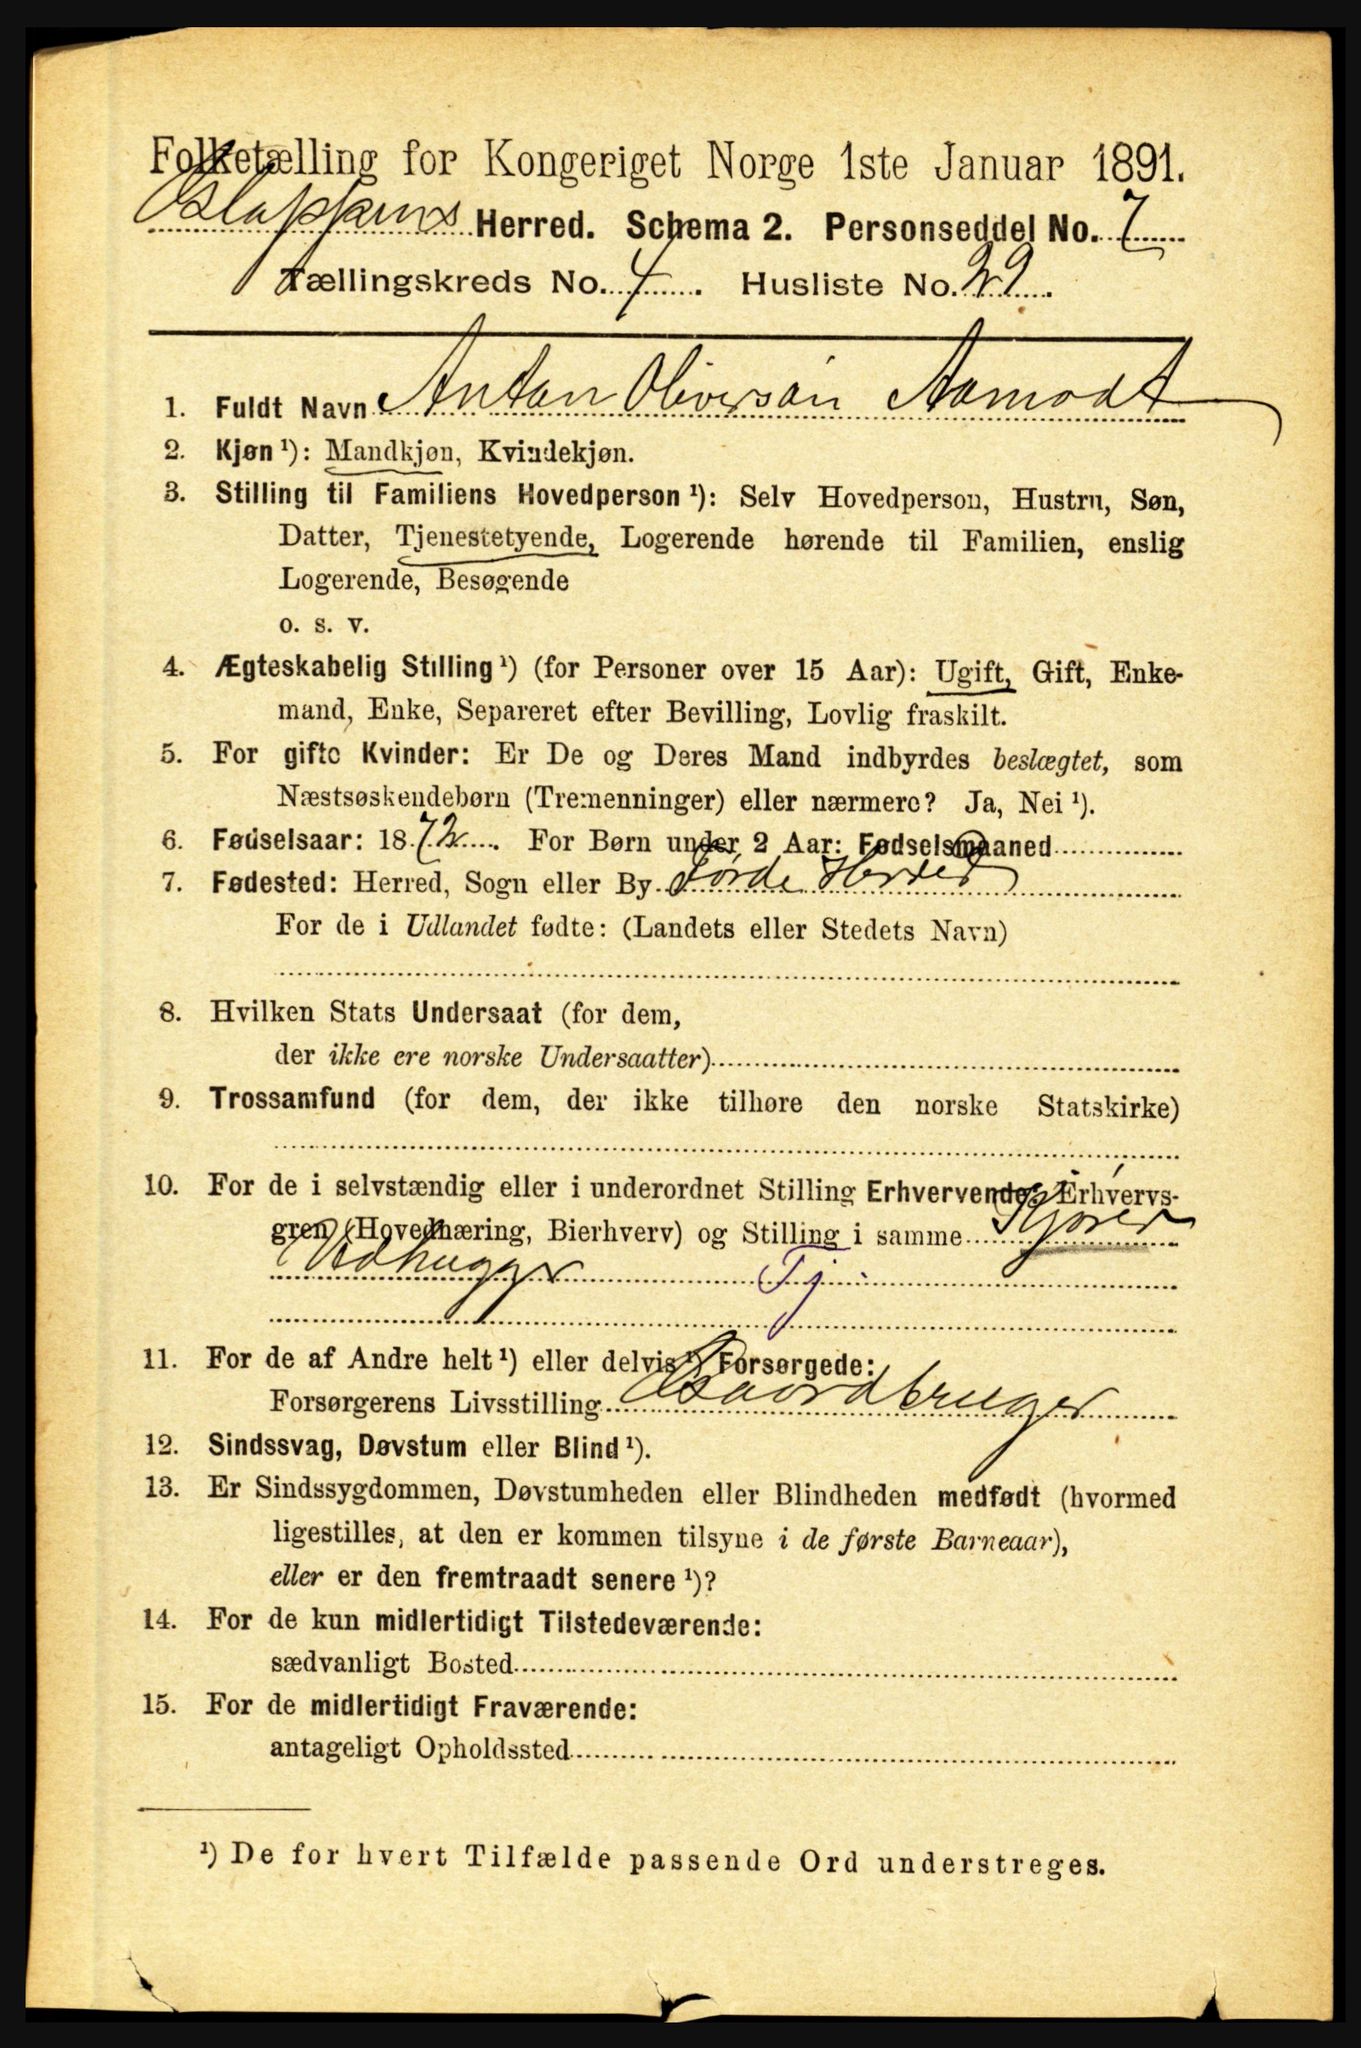 Folketælling for Kongeriget Norge 1ste Januar 1891.
Gloppens Herred. Schema 2. Personseddel No. 7
Tællingskreds No. 4. Husliste No. 22.
1. Fuldt Navn Anton Oliversön Aamodt
2. Kjøn ¹): Mandkjøn, Kvindekjøn.
3. Stilling til Familiens Hovedperson ¹): Selv Hovedperson, Hustru, Søn,
Datter, Tjenestetyende, Logerende hørende til Familien, enslig
Logerende, Besøgende
o. s. v.
4. Ægteskabelig Stilling ¹) (for Personer over 15 Aar): Ugift, Gift, Enke-
mand, Enke, Separeret efter Bevilling, Lovlig fraskilt.
5. For gifte Kvinder: Er De og Deres Mand indbyrdes beslægtet, som
Næstsøskendebørn (Tremenninger) eller nærmere? Ja, Nei ¹).
6. Fødselsaar: 1872. For Børn under 2 Aar: Fødselsmaaned
7. Fødested: Herred, Sogn eller By Förde Herred
For de i Udlandet fødte: (Landets eller Stedets Navn)
8. Hvilken Stats Undersaat (for dem,
der ikke ere norske Undersaatter)
9. Trossamfund (for dem, der ikke tilhøre den norske Statskirke)
10. For de i selvstændig eller i underordnet Stilling Erhvervende: Erhvervs-
gren (Hovednæring, Bierhverv) og Stilling i samme Kjører
Vedhugger Tj.
11. For de af Andre helt ¹) eller delvis ¹) Forsørgede:
Forsørgerens Livsstilling Gaardbruger
12. Sindssvag, Døvstum eller Blind ¹).
13. Er Sindssygdommen, Døvstumheden eller Blindheden medfødt (hvormed
ligestilles, at den er kommen tilsyne i de første Barneaar),
eller er den fremtraadt senere ¹)?
14. For de kun midlertidigt Tilstedeværende:
sædvanligt Bosted
15. For de midlertidigt Fraværende:
antageligt Opholdssted
¹) De for hvert Tilfælde passende Ord understreges.